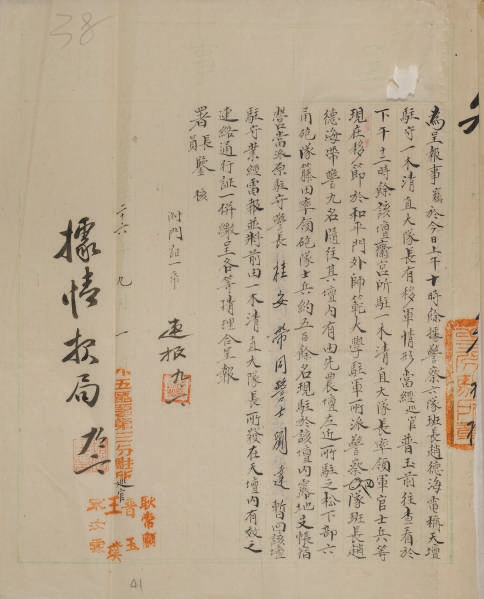 38
為呈報事竊於今日上午十時餘據警察六隊班長趙德海電稱天壇
駐守一木清直大隊長有移軍情形當經巡官普玉前往查看於
下午十二時餘該壇齋宮所駐一木清直大隊長率領軍官士兵等
現在移節於和平門外師範大學駐軍所派警察六隊班長趙
德海帶警九名隨往其壇內有由先農壇左近所駐之松下部六
甬砲隊藤田率領砲隊士兵約五百餘名現駐於該壇內露地支帳宿
營當派原駐守警長桂安榮同警士劉達暫回該壇
駐守業經電報並對前由一木清直大隊長所發在天壇內有效之
連絡通行証一併繳呈各等情理合呈報
署長
員鑒核
附門証一帋
連根九
二十六 九 一
據情报局
外五區警署第三分駐所巡官
耿常順
普玉
王瑛
41